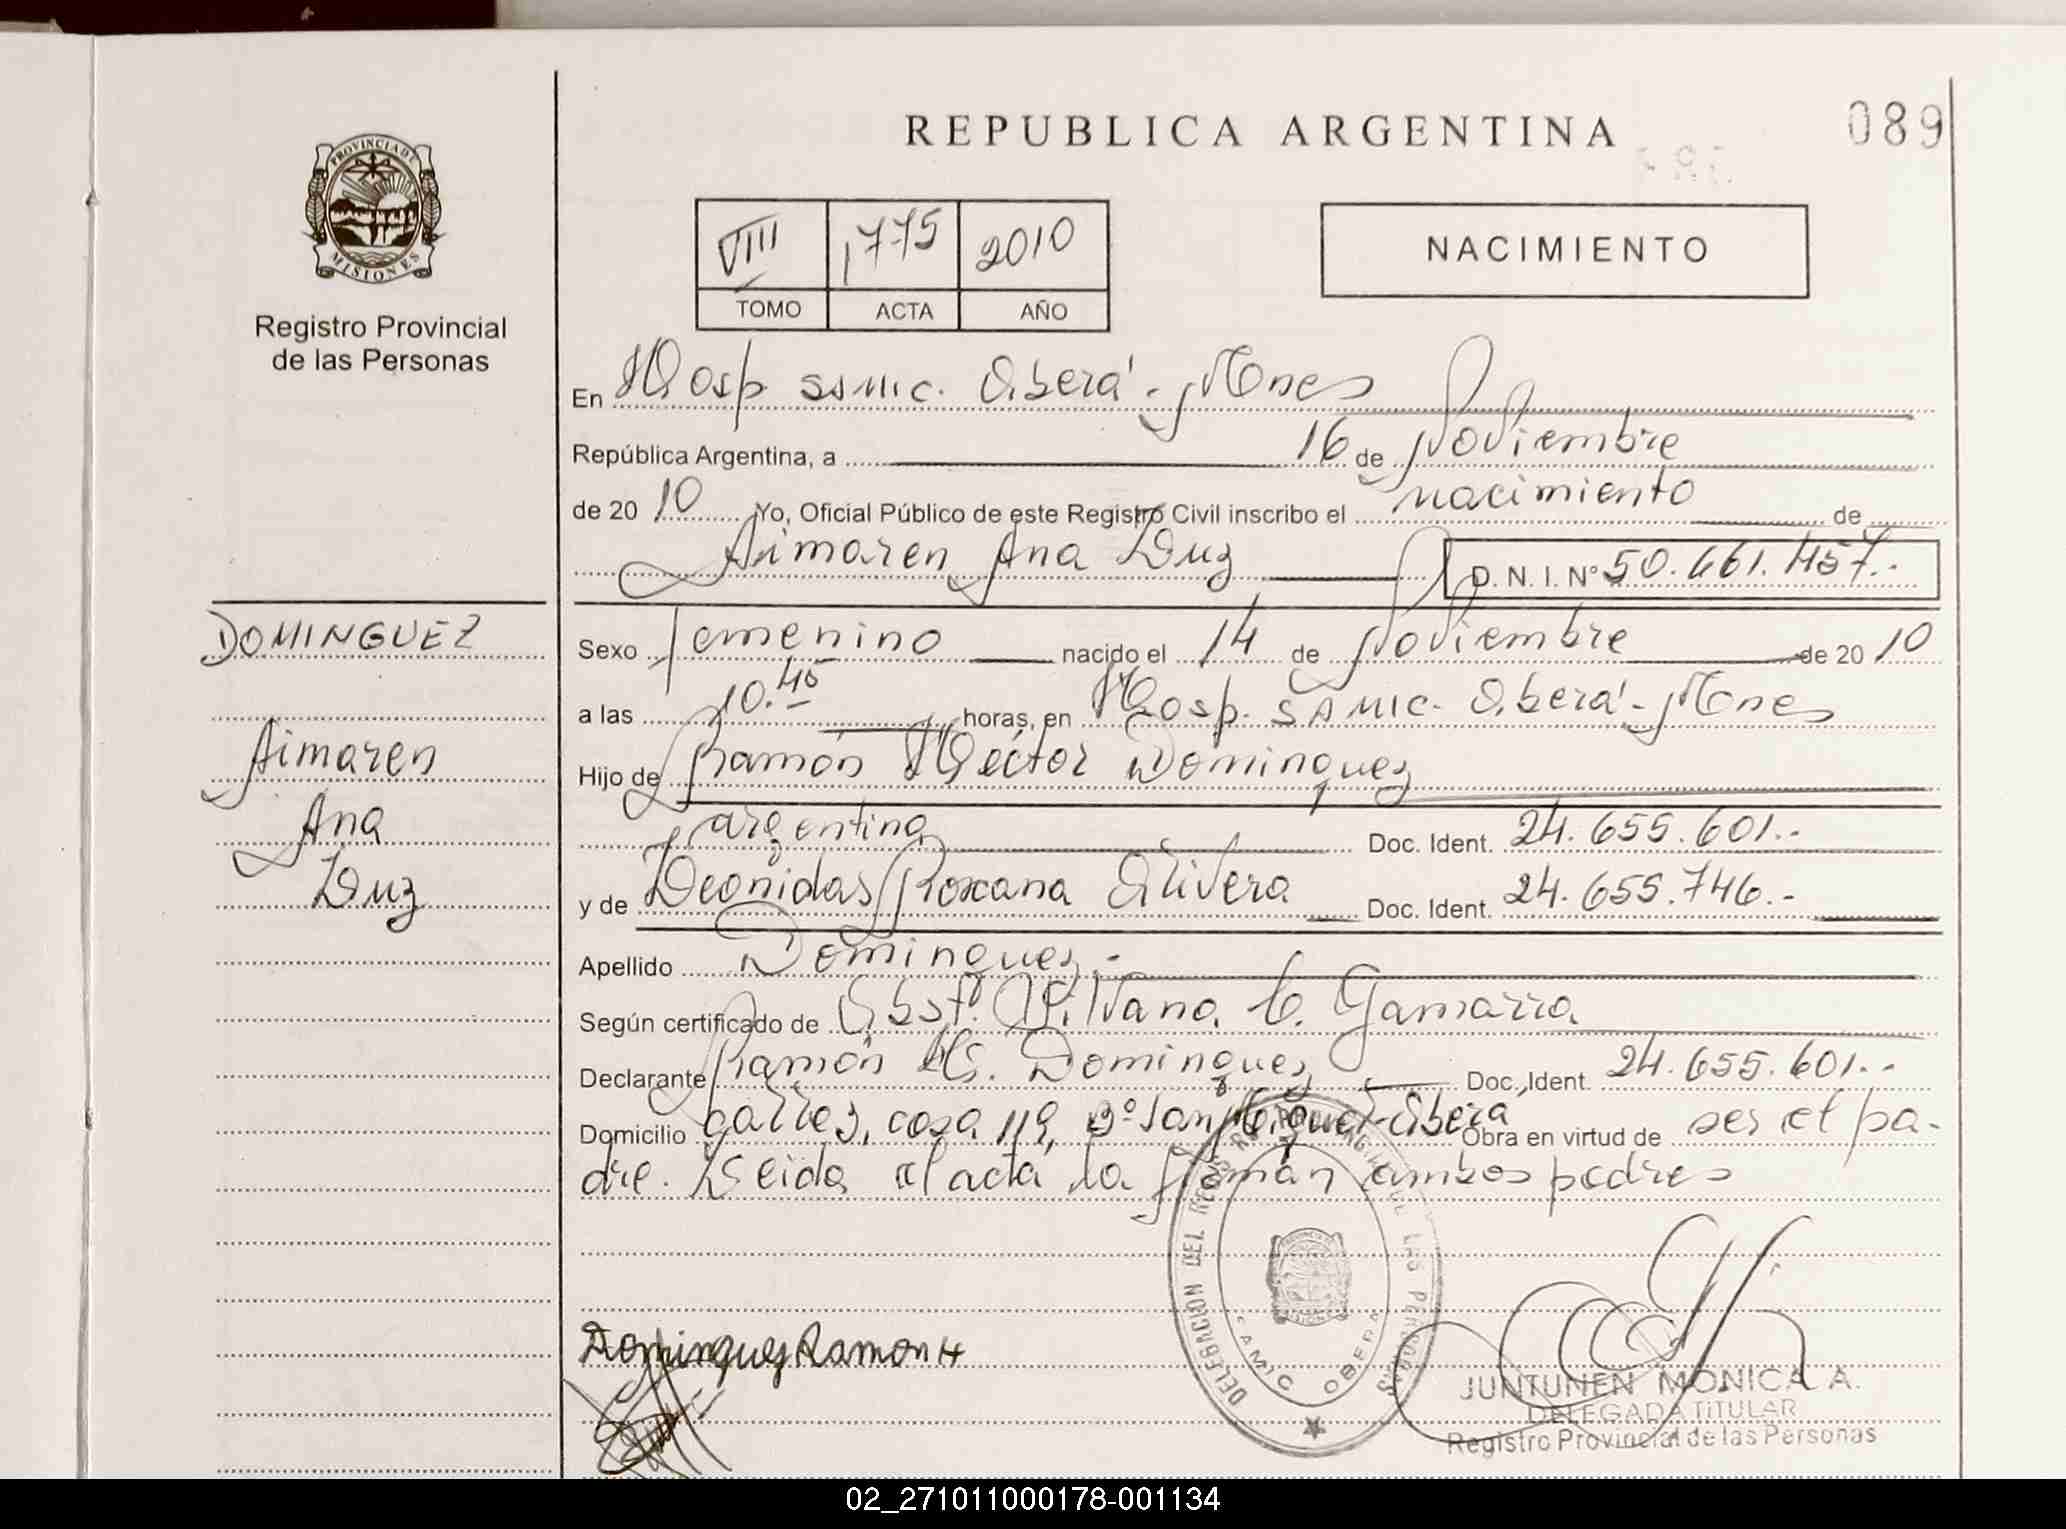 REPUBLICA ARGENTINA
089
PROVINCIA DE
MISIONES
Registro Provincial
de las Personas
VIII 1775 2010
TOMO ACTA AÑO
NACIMIENTO
En Hosp SAMIC. Oberá - Mnes
República Argentina, a 16 de Noviembre
de 20 10 Yo, Oficial Público de este Registro Civil inscribo el nacimiento de
Aimaren Ana Luz D. N. I. Nº 50.661.457.-
DOMINGUEZ
Aimaren
Ana
Luz
Sexo femenino nacido el 14 de Noviembre de 20 10
a las 10.45 horas, en Hosp. SAMIC. Oberá - Mnes
Hijo de Ramón Héctor Dominguez
argentina Doc. Ident. 24.655.601.-
y de Leonidas Roxana Olivera Doc. Ident. 24.655.746.-
Apellido Dominguez.-
Según certificado de Obst. Silvana C. Gamarra
Declarante Ramón H. Dominguez Doc. Ident. 24.655.601.-
Domicilio casa 119, Bº San Miguel - Oberá Obra en virtud de ser el pa-
dre. Leida el acta la firman ambos padres
DELEGACION DEL REGISTRO PROVINCIAL DE LAS PERSONAS
SAMIC OBERA
Dominguez Ramon H
JUNTUNEN MONICA A.
DELEGADA TITULAR
Registro Provincial de las Personas
02_271011000178-001134